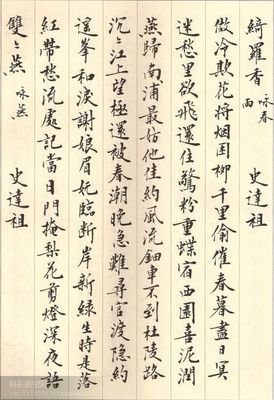 綺羅香 咏春雨 史達祖
做冷欺花將烟困柳千里偷催春暮盡日冥
迷愁里欲飛還住驚粉重蝶宿西園喜泥潤
燕歸南浦最妨他佳約風流鈿車不到杜陵路
沉〻江上望極還被春潮晚急難尋官渡隐約
遥峯和淚謝娘眉妩臨断岸新緑生時是落
紅帶愁流處記當日門掩梨花剪燈深夜語
雙〻燕 咏燕 史達祖